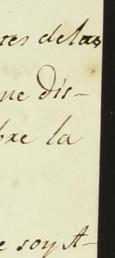 tes delas
ue dis-
bre la
e soy A-